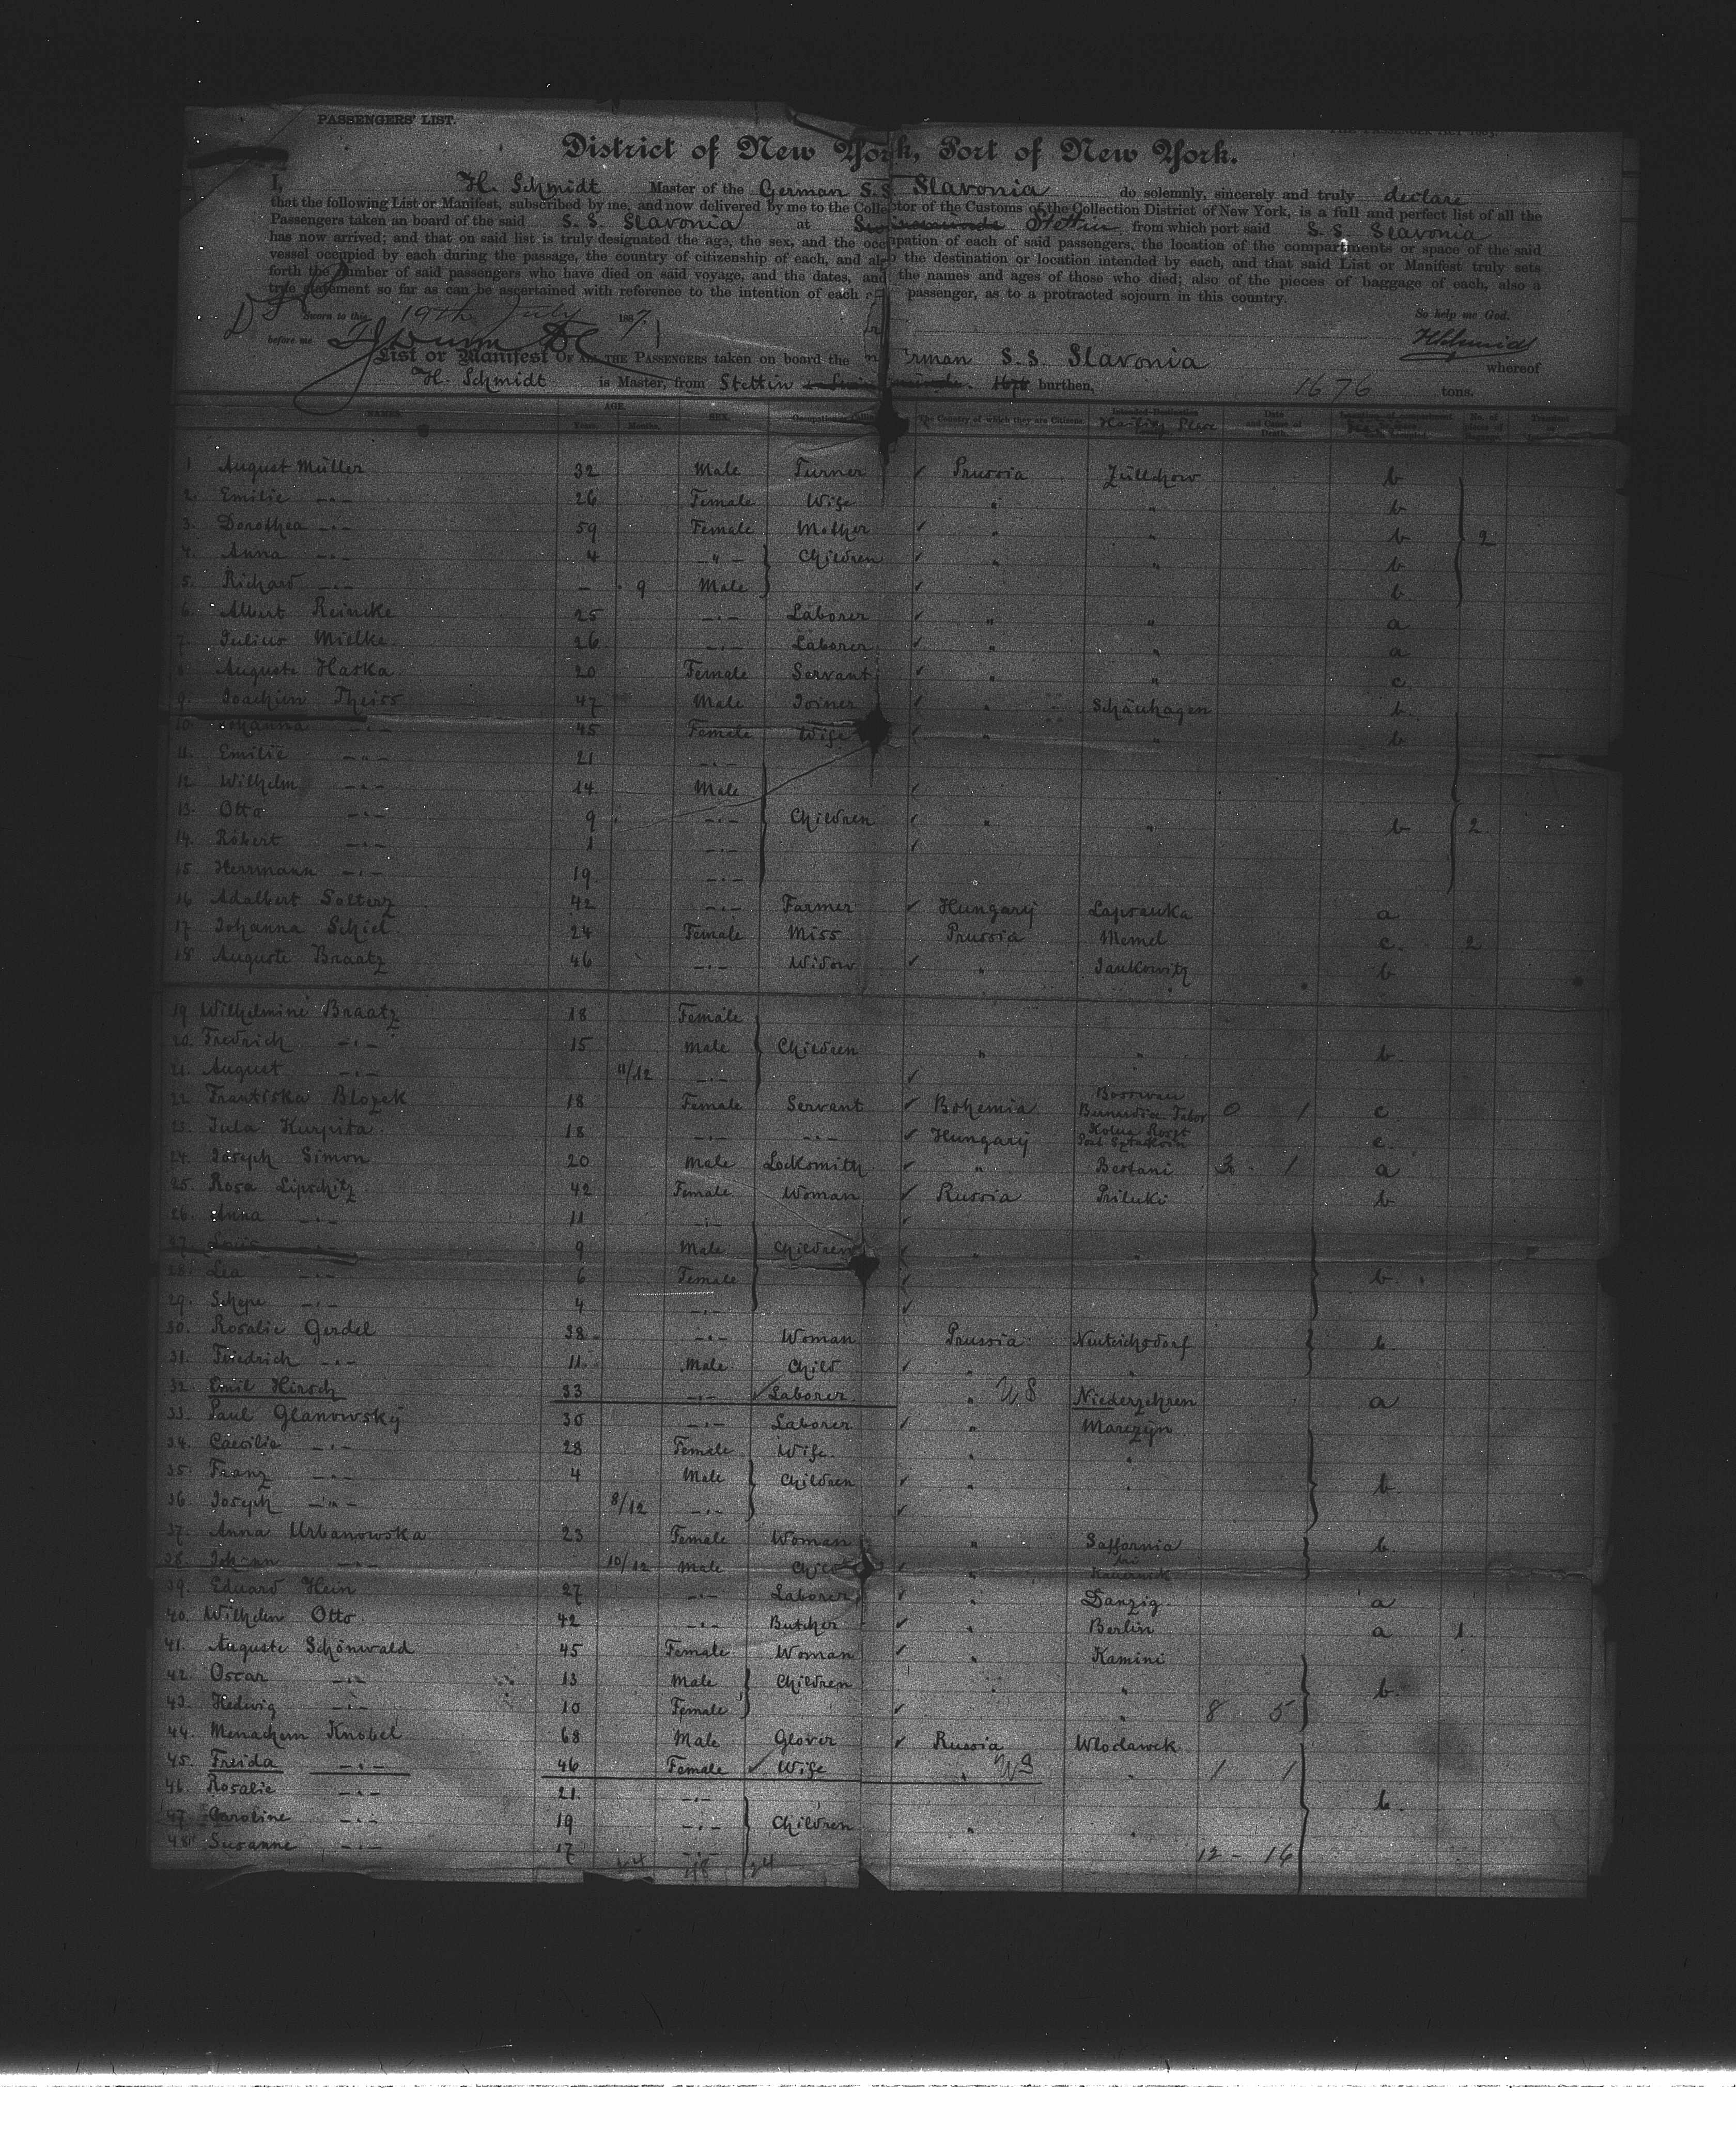 PASSENGERS' LIST.
District of New York, Port of New York.
I, H. Schmidt Master of the German S.S. Slavonia do solemnly, sincerely and truly declare
that the following List or Manifest, subscribed by me, and now delivered by me to the Collector of the Customs of the Collection District of New York, is a full and perfect list of all the
Passengers taken an board of the said S. S. Slavonia at Stettin from which port said S. S. Slavonia
has now arrived; and that on said list is truly designated the age, the sex, and the occupation of each of said passengers, the location of the compartments or space of the said
vessel occupied by each during the passage, the country of citizenship of each, and also the destination or location intended by each, and that said List or Manifest truly sets
forth the number of said passengers who have died on said voyage, and the dates, and the names and ages of those who died; also of the pieces of baggage of each, also a
true statement so far as can be ascertained with reference to the intention of each passenger, as to a protracted sojourn in this country.
Sworn to this 19th July 1887. So help me God.
before me HSchmidt
List or Manifest OF ALL THE PASSENGERS taken on board the German S. S. Slavonia whereof
H. Schmidt is Master, from Stettin burthen, 1676 tons.
NAMES. AGE. Years. Months. SEX. Occupation The Country of which they are Citizens. Intended Destination Hailing Place Date and Cause of Death. No. of pieces of
1 August Müller 32 Male Turner Prussia Züllchow b
2. Emilie -"- 26 Female Wife " " b
3. Dorothea -"- 59 Female Mother " " b 2
4. Anna -"- 4 -"- Children " " b
5. Richard -"- - 9 Male b
6. Albert Reincke 25 -"- Laborer " " a
7. Julius Mielke 26 -"- Laborer " " a
8 Auguste Haska 20 Female Servant " " c
9. Joachim Theiss 47 Male Joiner " Schönhagen b
10. Johanna -"- 45 Female Wife " " b
11. Emilie -"- 21 -"-
12 Wilhelm -"- 14 Male
13. Otto -"- 9 -"- Children " " b 2
14. Robert -"- 1 -"-
15. Herrmann -"- 19 -"-
16 Adalbert Solterz 42 -"- Farmer Hungary Lapsauka a
17. Johanna Schiel 24 Female Miss Prussia Memel c. 2
18 Auguste Braatz 46 -"- Widow " Jankowitz b
19 Wilhelmine Braatz 18 Female
20. Fredrich -"- 15 Male Children " " b
21. August -"- 11/12 -"-
22 Frantiska Blozek 18 Female Servant Bohemia Tabor 0 1 c
23. Jula Kurpita 18 -"- -"- Hungary c.
24. Joseph Simon 20 Male Locksmith " Bestani 1 a
25. Rosa Lipschitz 42 Female Woman Russia Priluki b
26. Anna -"- 11 -"-
27. Louis -"- 9 Male Children " "
28. Lea -"- 6 Female b
29. Schepe -"- 4 -"-
30. Rosalie Gerdel 38 -"- Woman Prussia Neuteichsdorf b.
31. Friedrich -"- 11 Male Child " "
32 Emil Hirsch 33 -"- Laborer " US Niederzehren a
33. Paul Glanowsky 30 -"- Laborer " Marezyn
34. Caecilie -"- 28 Female Wife " "
35. Franz -"- 4 Male Children " " b
36 Joseph -"- 8/12 -"-
37. Anna Urbanowska 23 Female Woman " Saffornia b.
38. Johann -"- 10/12 Male Child " bei Kauernik
39. Eduard Hein 27 -"- Laborer " Danzig a
40. Wilhelm Otto 42 -"- Butcher Berlin a 1
41. Auguste Schönwald 45 Female Woman " Kamini
42. Oscar -"- 13 Male Children " " b
43. Hedwig -"- 10 Female " 8 5
44. Menachem Knobel 68 Male Glover Russia Wloclawek
45. Freida -"- 46 Female Wife " US " 1 1
46. Rosalie -"- 21 -"- b.
47. Caroline -"- 19 -"- Children " "
48 Susanne -"- 17 -"- 12 - 16